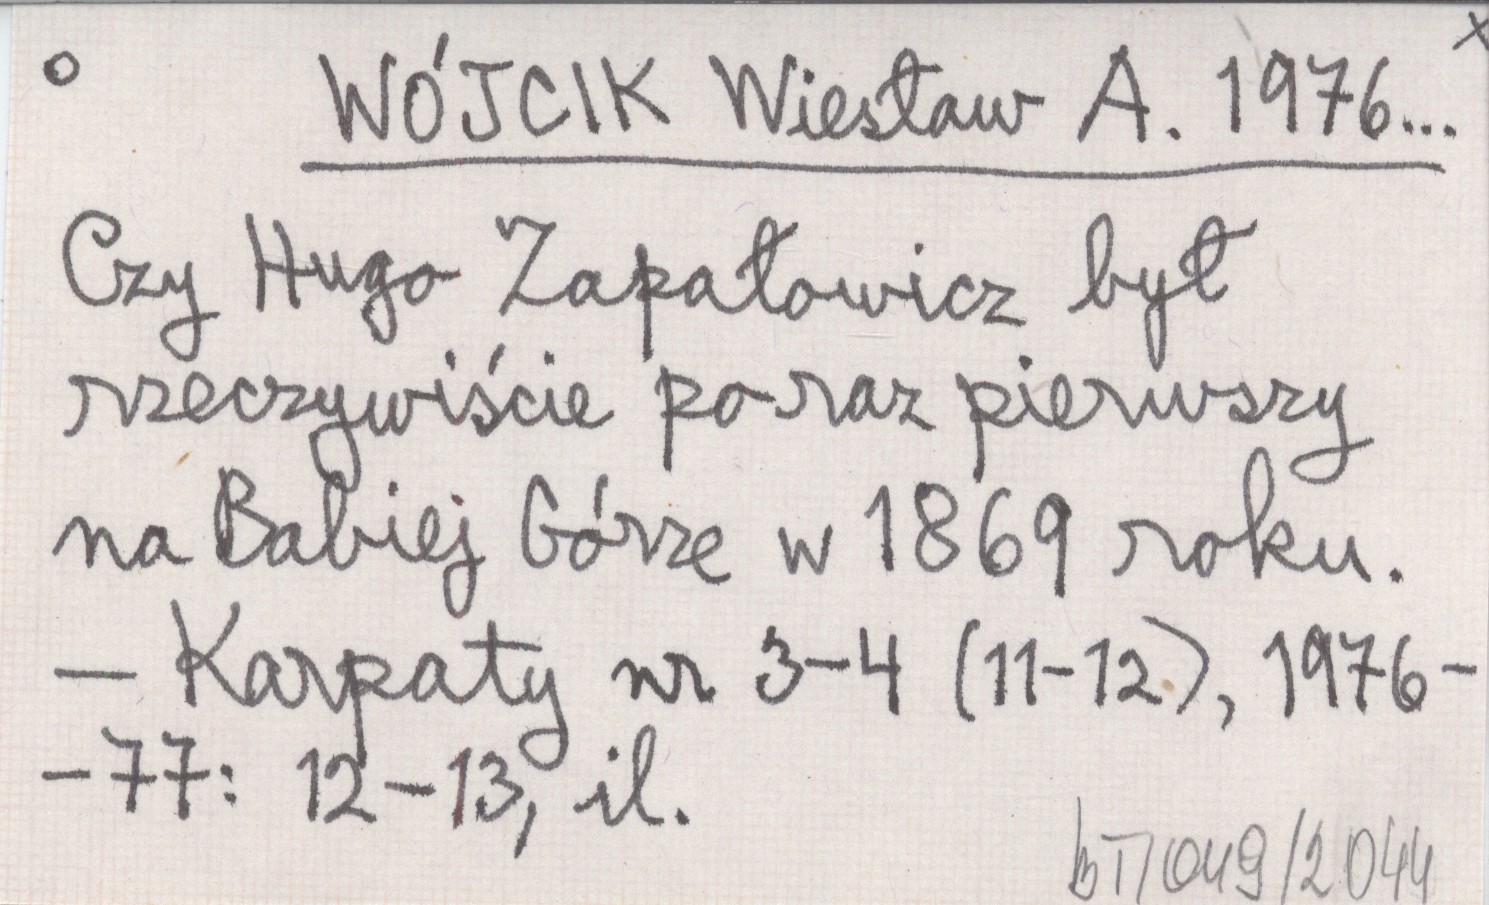 o WÓJCIK Wiesław A. 1976... x
Czy Hugo Zapałowicz był
rzeczywiście po raz pierwszy
na Babiej Górze w 1869 roku.
— Karpaty nr 3-4 (11-12), 1976-
-77: 12-13, il.
BT/049/2044